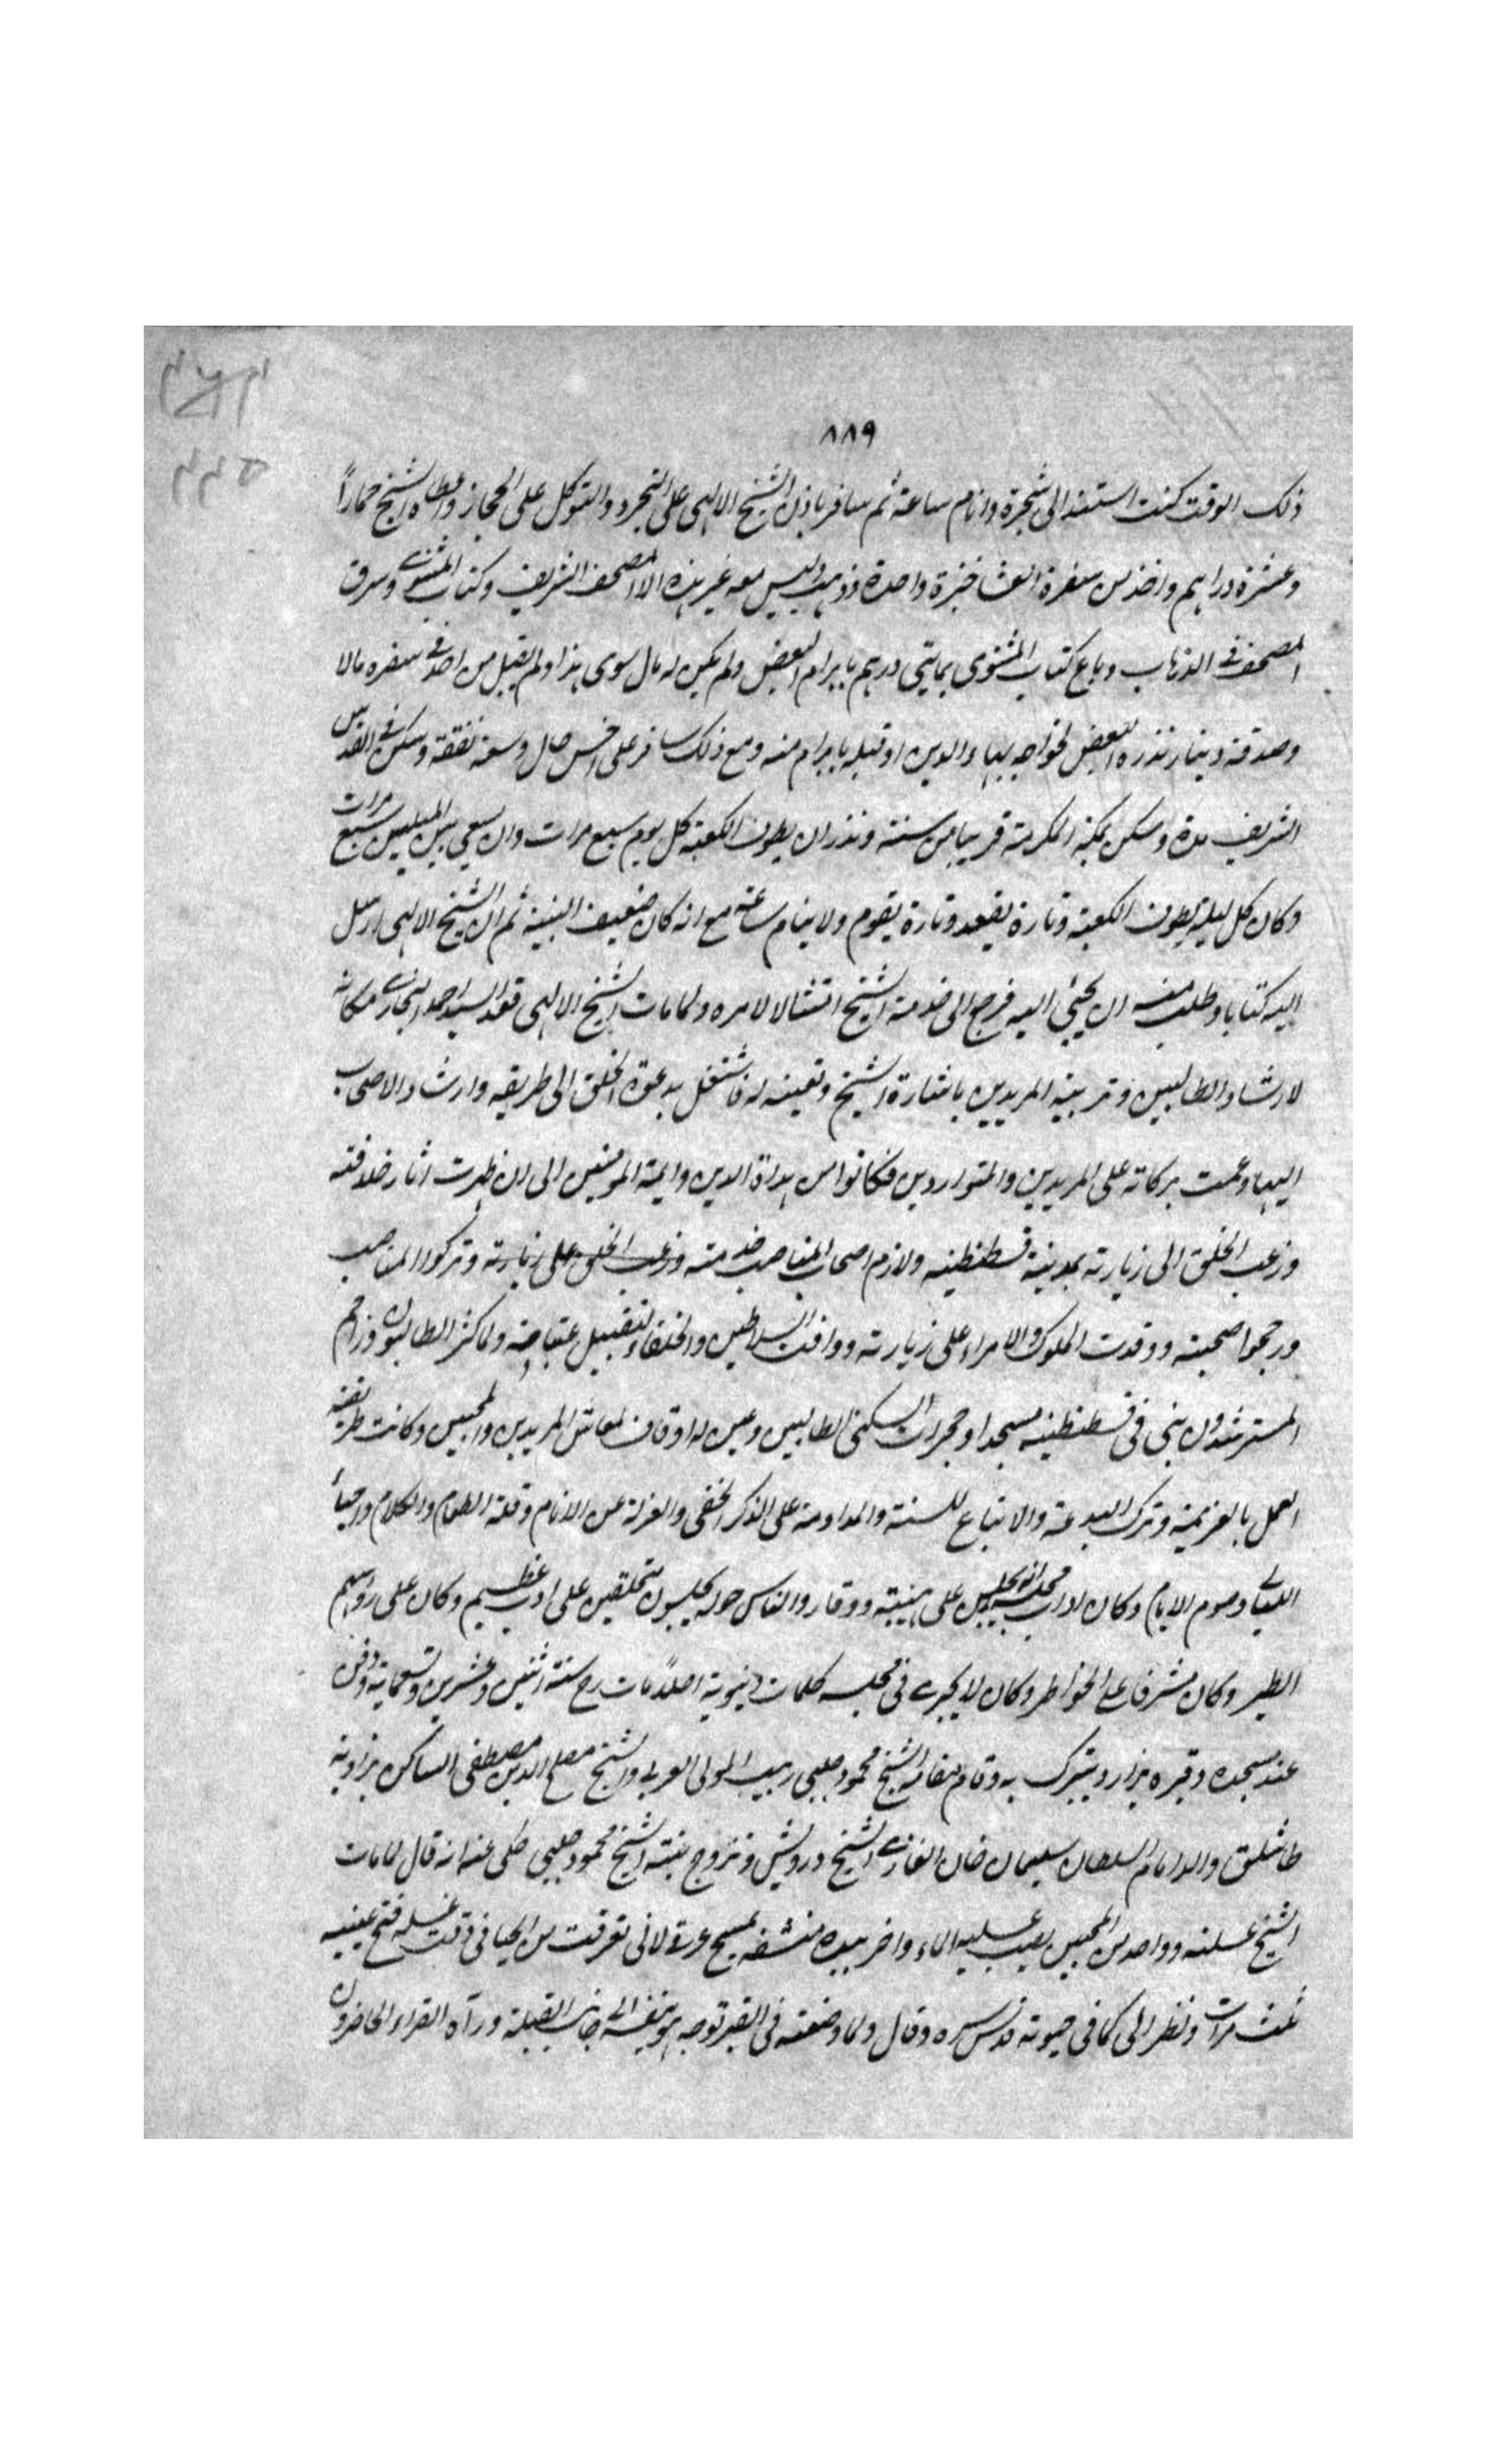 ٨٨٩
ذلك الوقت كنت استند الى شجرة وانام ساعة ثم سافر باذن الشيخ الالهى على التجرد والتوكل على الحجاز واعطاه الشيخ حمارا
وعشرة دراهم واخذ من سفرة العشا خبزة واحدة وذهب وليس معه غير هذه الا المصحف الشريف وكتاب المثنوى وسرق
المصحف فى الذهاب وباع كتاب المثنوى بمايتى درهم بابرام البعض ولم يكن له مال سوى هذا ولم يقبل من احد فى سفره مالا
وصدقة دينار نذره البعض لخواجه بهاء الدين او قبله بابرام منه ومع ذلك سافر على احسن حال وسعة نفقة وسكن فى القدس
الشريف مدة وسكن بمكة المكرمة قريبا من سنة ونذر ان يطوف الكعبة كل يوم سبع مرات وان يسعى بين الميلين سبع مرات
وكان كل ليلة يطوف الكعبة وتارة يقعد وتارة يقوم ولا ينام ساعة مع انه كان ضعيف البنية ثم ان الشيخ الالهى ارسل
اليه كتابا وطلب منه ان يجئ اليه فرجع الى خدمة الشيخ امتثالا لامره ولما مات الشيخ الالهى قعد السيد احمد البخارى مكانه
لارشاد الطالبين وتربية المريدين باشارة الشيخ وتعينه له فاشتغل بدعوة الخلق الى طريقه وارشاد الاصحاب
اليها وعمت بركاته على المريدين والمتواردين فكانوا من هداة الدين وايمة المومنين الى ان ظهرت اثار خلافته
ورغب الخلق الى زيارته بمدينة قسطنطينيه ولازم اصحاب المناصب خدمته ورغب الخلق على زيارته وتركوا المناصب
ورجحوا صحبته ووفدت الملوك والامراء على زيارته ووافت السلاطين والخلفاء لتقبيل عتبا‌ته ولما كثر الطالبون وزاحم
المسترشدون بنى فى قسطنطينيه مسجدا وحجرات لسكنى الطالبين وعين له اوقاف لمعاش المريدين والمحبين وكانت طريقته
العمل بالعزيمة وترك البدعة والاتباع للسنة والمداومة على الذكر الخفى والعزلة عن الانام وقلة الطعام والكلام واحياء
الليالى وصوم الايام وكان اداب مجلسه انه يجلس على هيبة ووقار والناس حوله يجلسون متحلقين على ادب عظيم وكان على رؤسهم
الطير وكان مشرفا على الخواطر وكان لا يجرى فى مجلسه كلمات دنيوية اصلا مات رح سنة اثنين وعشرين وتسعماية ودفن
عند مسجده وقبره يزار ويتبرك به وقام مقامه الشيخ محمود چلبى ربيب المولى العربى والشيخ مصلح الدين مصطفى الساكن بزاوية
طاشلق والد امام السلطان سليمان خان الغازى الشيخ درويش وتزوج بنته الشيخ محمود چلبى حكى عنه انه قال لما مات
الشيخ غسلته وواحد من المحبين يصب عليه الماء واخر بيده منشفه يمسح عرقه لانى تعرقت من الحيا فى وقت غسله فتح عينيه
ثلث مرات ونظر الى كما فى حيوته قدس سره وقال ولما وضعته فى القبر توجه هو بنفسه الى جانب القبلة ورآه القراء الحاضرون